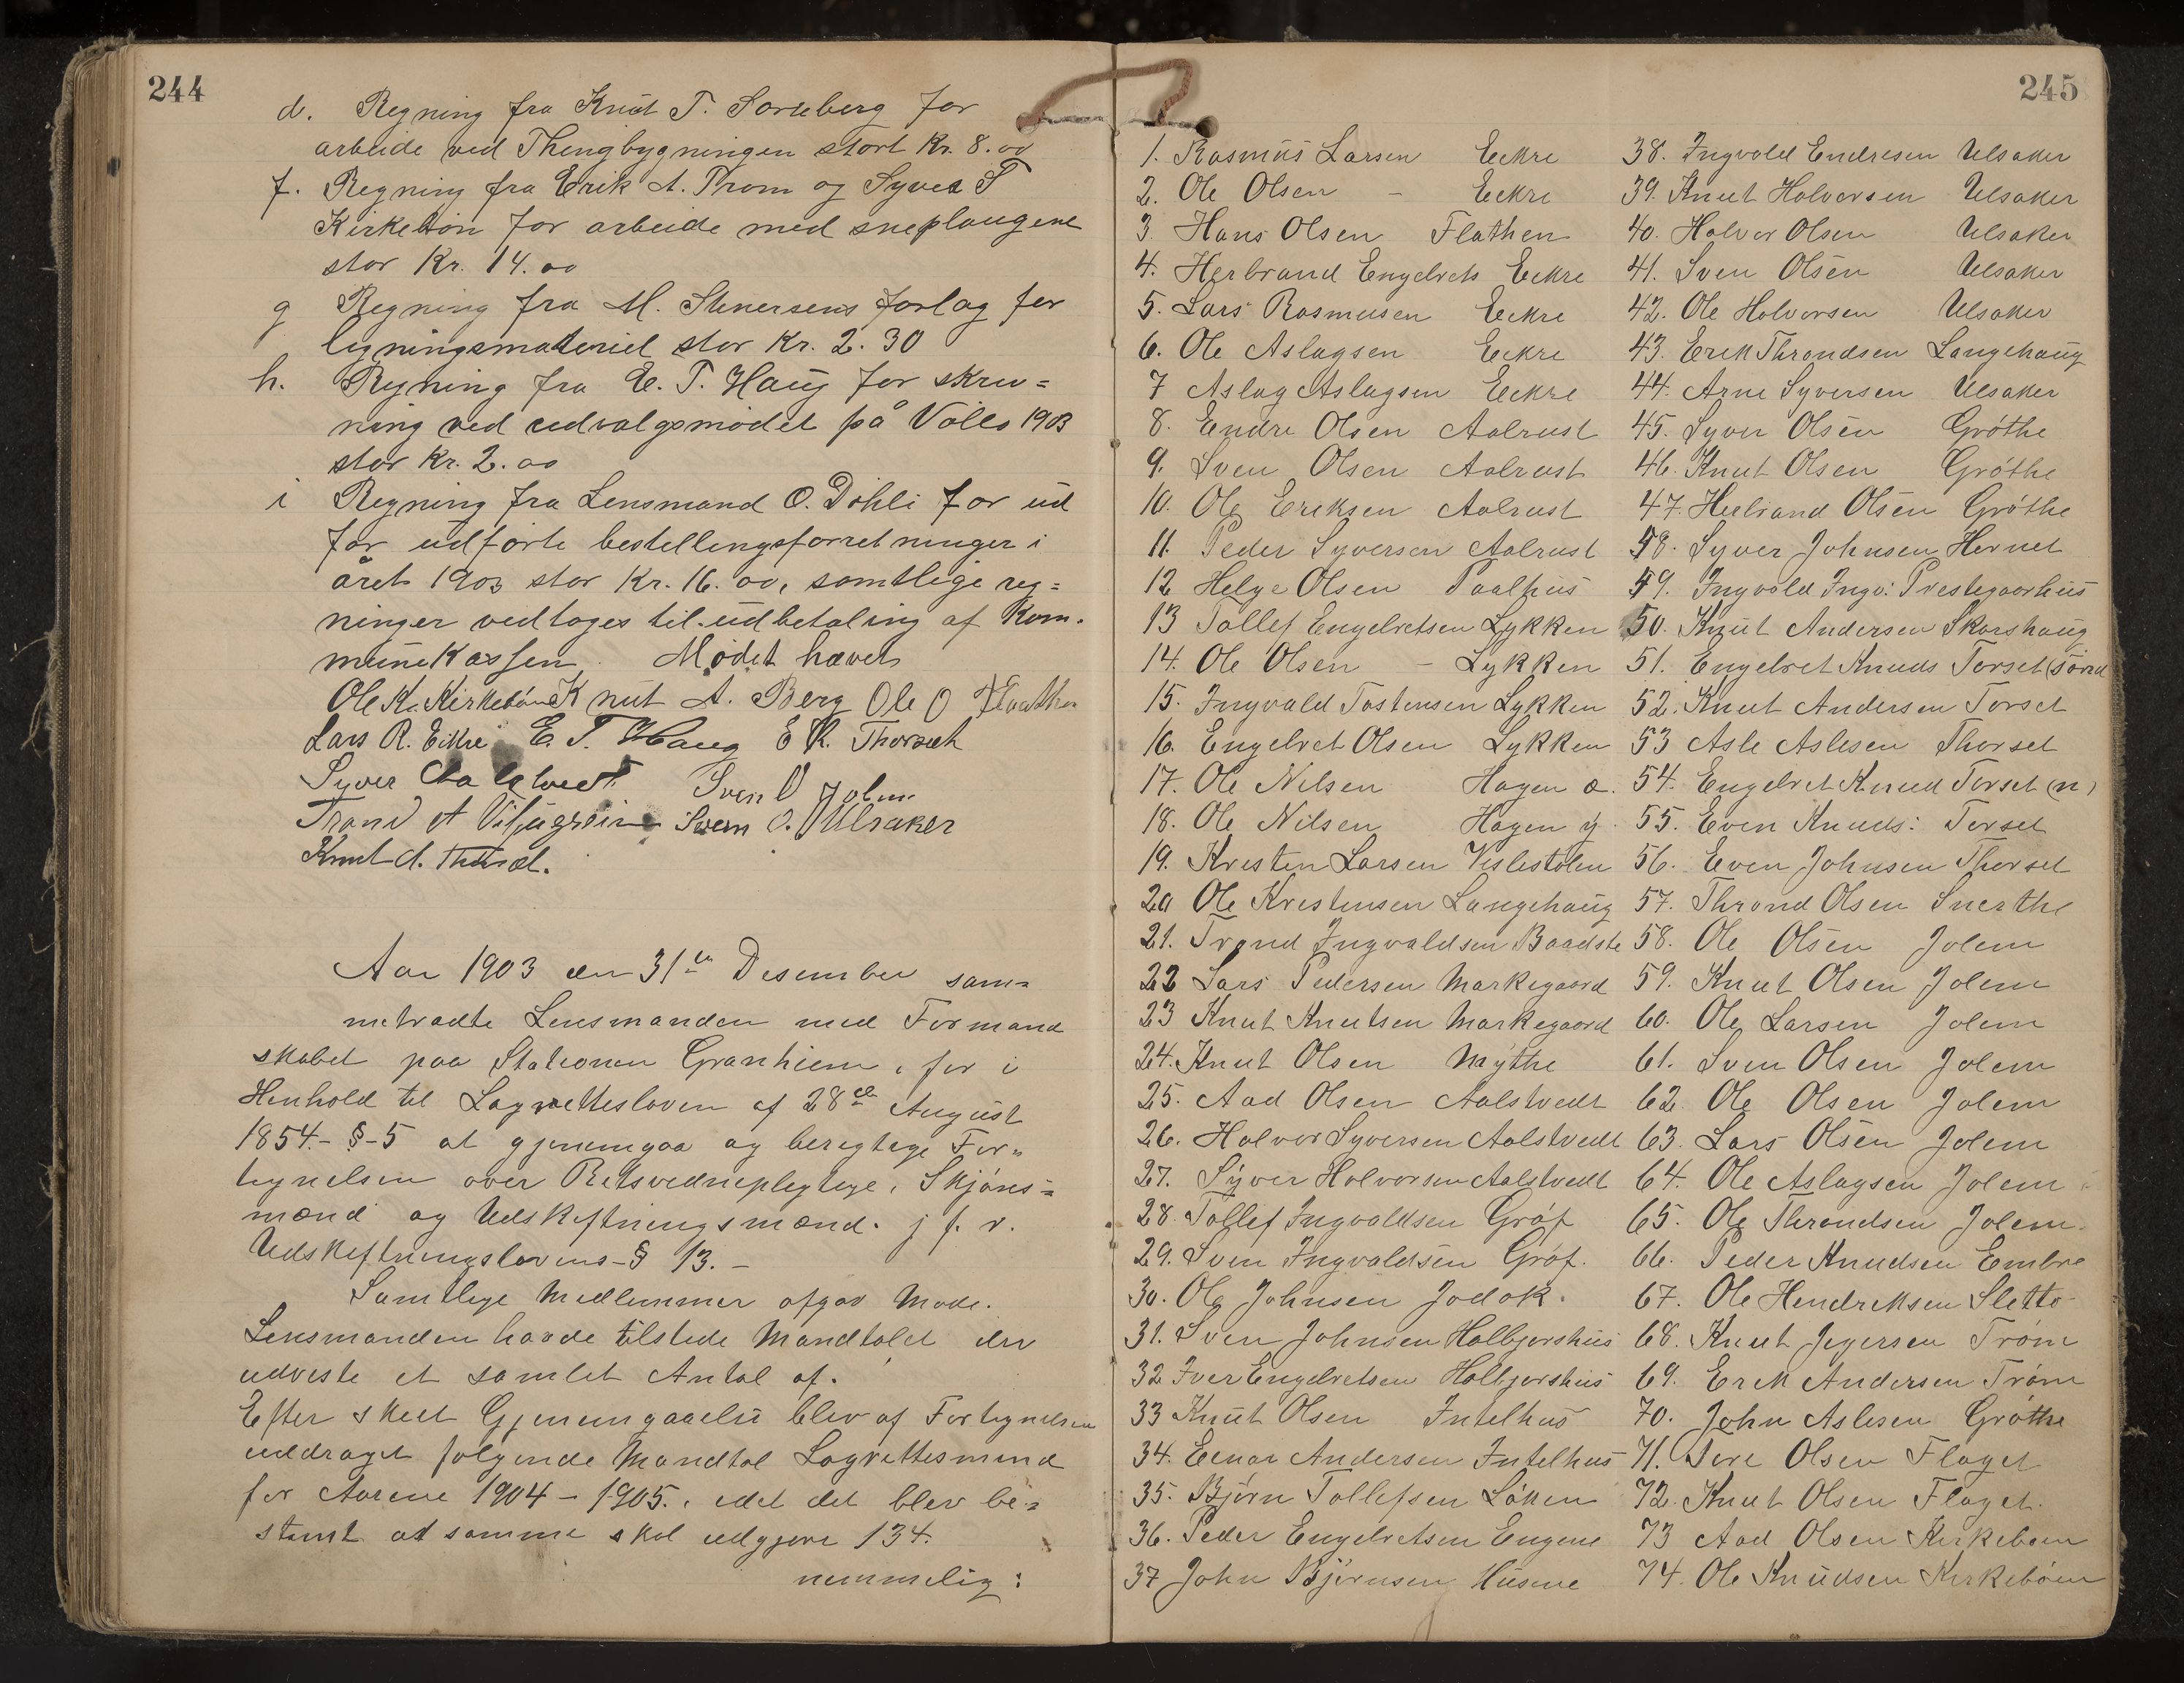 244
d. Regning fra Knut T. Sorteberg for
arbeide ved Thingbygningen stort Kr. 8.00
f. Regning fra Erik A. Trom og Syver T
Kirkebøn for arbeide med sneplougene
stor Kr. 14.00
g Regning fra M. Stenersens forlag for
ligningsmateriel stor Kr. 2.30
h. Regning fra E. T. Haug for skriv=
ning ved udvalgsmødet på Völlo 1903
stor Kr. 2.00
i Regning fra Lensmand O. Döhli for ud
for udførte bestellingsforretninger i
året 1903 stor Kr. 16.00, samtlige reg=
ninger vedtoges til udbetaling af Kom.
munekassen. Mödet hævet
Ole K. Kirkebøn Knut A. Berg Ole O Flaathen
Lars R. Eikre E. T. Haug E K. Thorset
Syver Aalstvedt Sven O Jolm
Trond A Viljugrein Svein O. Ulsaker
Knut A. Thorset.
Aar 1903 den 31te Desember sam=
mentraadte Lensmanden med Formand
skabet paa Stationen Granhiem, for i
Henhold til Lagrettesloven af 28de August
1854 - § - 5 at gjennemgaa og berigtige For=
tegnelsen over Retsvidnepligtige, Skjöns=
mænd og Udskiftningsmænd. j f. r.
Udskiftningslovens - § 13. -
Samtlige Medlemmer afgav Møde.
Lensmanden havde tilstede Mandtalet der
udviste et samlet Antal af.
Efter skeet Gjennemgaaelse blev af Fortegnelsen
uddraget følgende Mandtal Lagrettesmænd
for Aarene 1904 - 1905., idet det blev be=
stemt at samme skal udgjøre 134.
nemmelig:
245
1. Rasmus Larsen Eekre
2. Ole Olsen - Eekre
3. Hans Olsen Flathen
4. Herbrand Engebrets Eekre
5. Lars Rasmusen Eekre
6. Ole Aslagsen Eekre
7 Aslag Aslagsen Eekre
8. Endre Olsen Aalrust
9. Sven Olsen Aalrust
10. Ole Eriksen Aalrust
11. Peder Syversen Aalrust
12 Helge Olsen Paalhus
13 Tollef Engebretsen Lykken
14. Ole Olsen - Lykken
15. Ingvald Tostensen Lykken
16. Engebret Olsen Lykken
17. Ole Nilsen Hagen æ.
18. Ole Nilsen Hagen y.
19. Kristen Larsen Veslestølen
20 Ole Kristensen Langehaug
21. Trond Ingvaldsen Baadste
22 Lars Pedersen Markegaard
23 Knut Knutsen Markegaard
24. Knut Olsen Mythe
25. Aad Olsen Aalstvedt
26. Halvor Syversen Aalstvedt
27. Syver Halvorsen Aalstvedt
28 Tollef Ingvaldsen Gróf
29. Sven Ingvaldsen Gróf.
30. Ole Johnsen Jodok.
31. Sven Johnsen Halbjørshus
32 Iver Engebretsen Halbjørshus
33 Knut Olsen Intelhus
34. Einar Andersen Intelhus
35. Björn Tollefsen Löken
36. Peder Engebretsen Engene
37 John Björnsen Husene
38. Ingvald Endresen Ulsaker
39. Knut Halvorsen Ulsaker
40. Halvor Olsen Ulsaker
41. Sven Olsen Ulsaker
42. Ole Halvorsen Ulsaker
43. Erik Throndsen Langehaug
44. Arne Syversen Ulsaker
45. Syver Olsen Gróthe
46. Knut Olsen Gróthe
47. Helbrand Olsen Gróthe
48. Syver Johnsen Hernet
49. Ingvald Ingv: Prestegaarhus
50. Knut Andersen Skarshaug
51. Engebret Knuds Torset (sönd
52. Knut Andersen Torset
53 Asle Aslesen Thorset
54. Engebret Knud Torset (n)
55. Even Knuds: Torset
56. Even Johnsen Thorset
57. Thrond Olsen Snerthe
58. Ole Olsen Jolem
59. Knut Olsen Jolem
60. Ole Larsen Jolem
61. Sven Olsen Jolem
62. Ole Olsen Jolem
63. Lars Olsen Jolem
64. Ole Aslagsen Jolem
65. Ole Throndsen Jolem.
66. Peder Knudsen Embre
67. Ole Hendriksen Sletto
68. Knut Jegersen Tróm
69. Erik Andersen Tróm
70. John Aslesen Gróthe
71. Tore Olsen Flaget
72. Knut Olsen Flaget.
73 Aad Olsen Kirkeböen
74. Ole Knudsen Kirkebóen